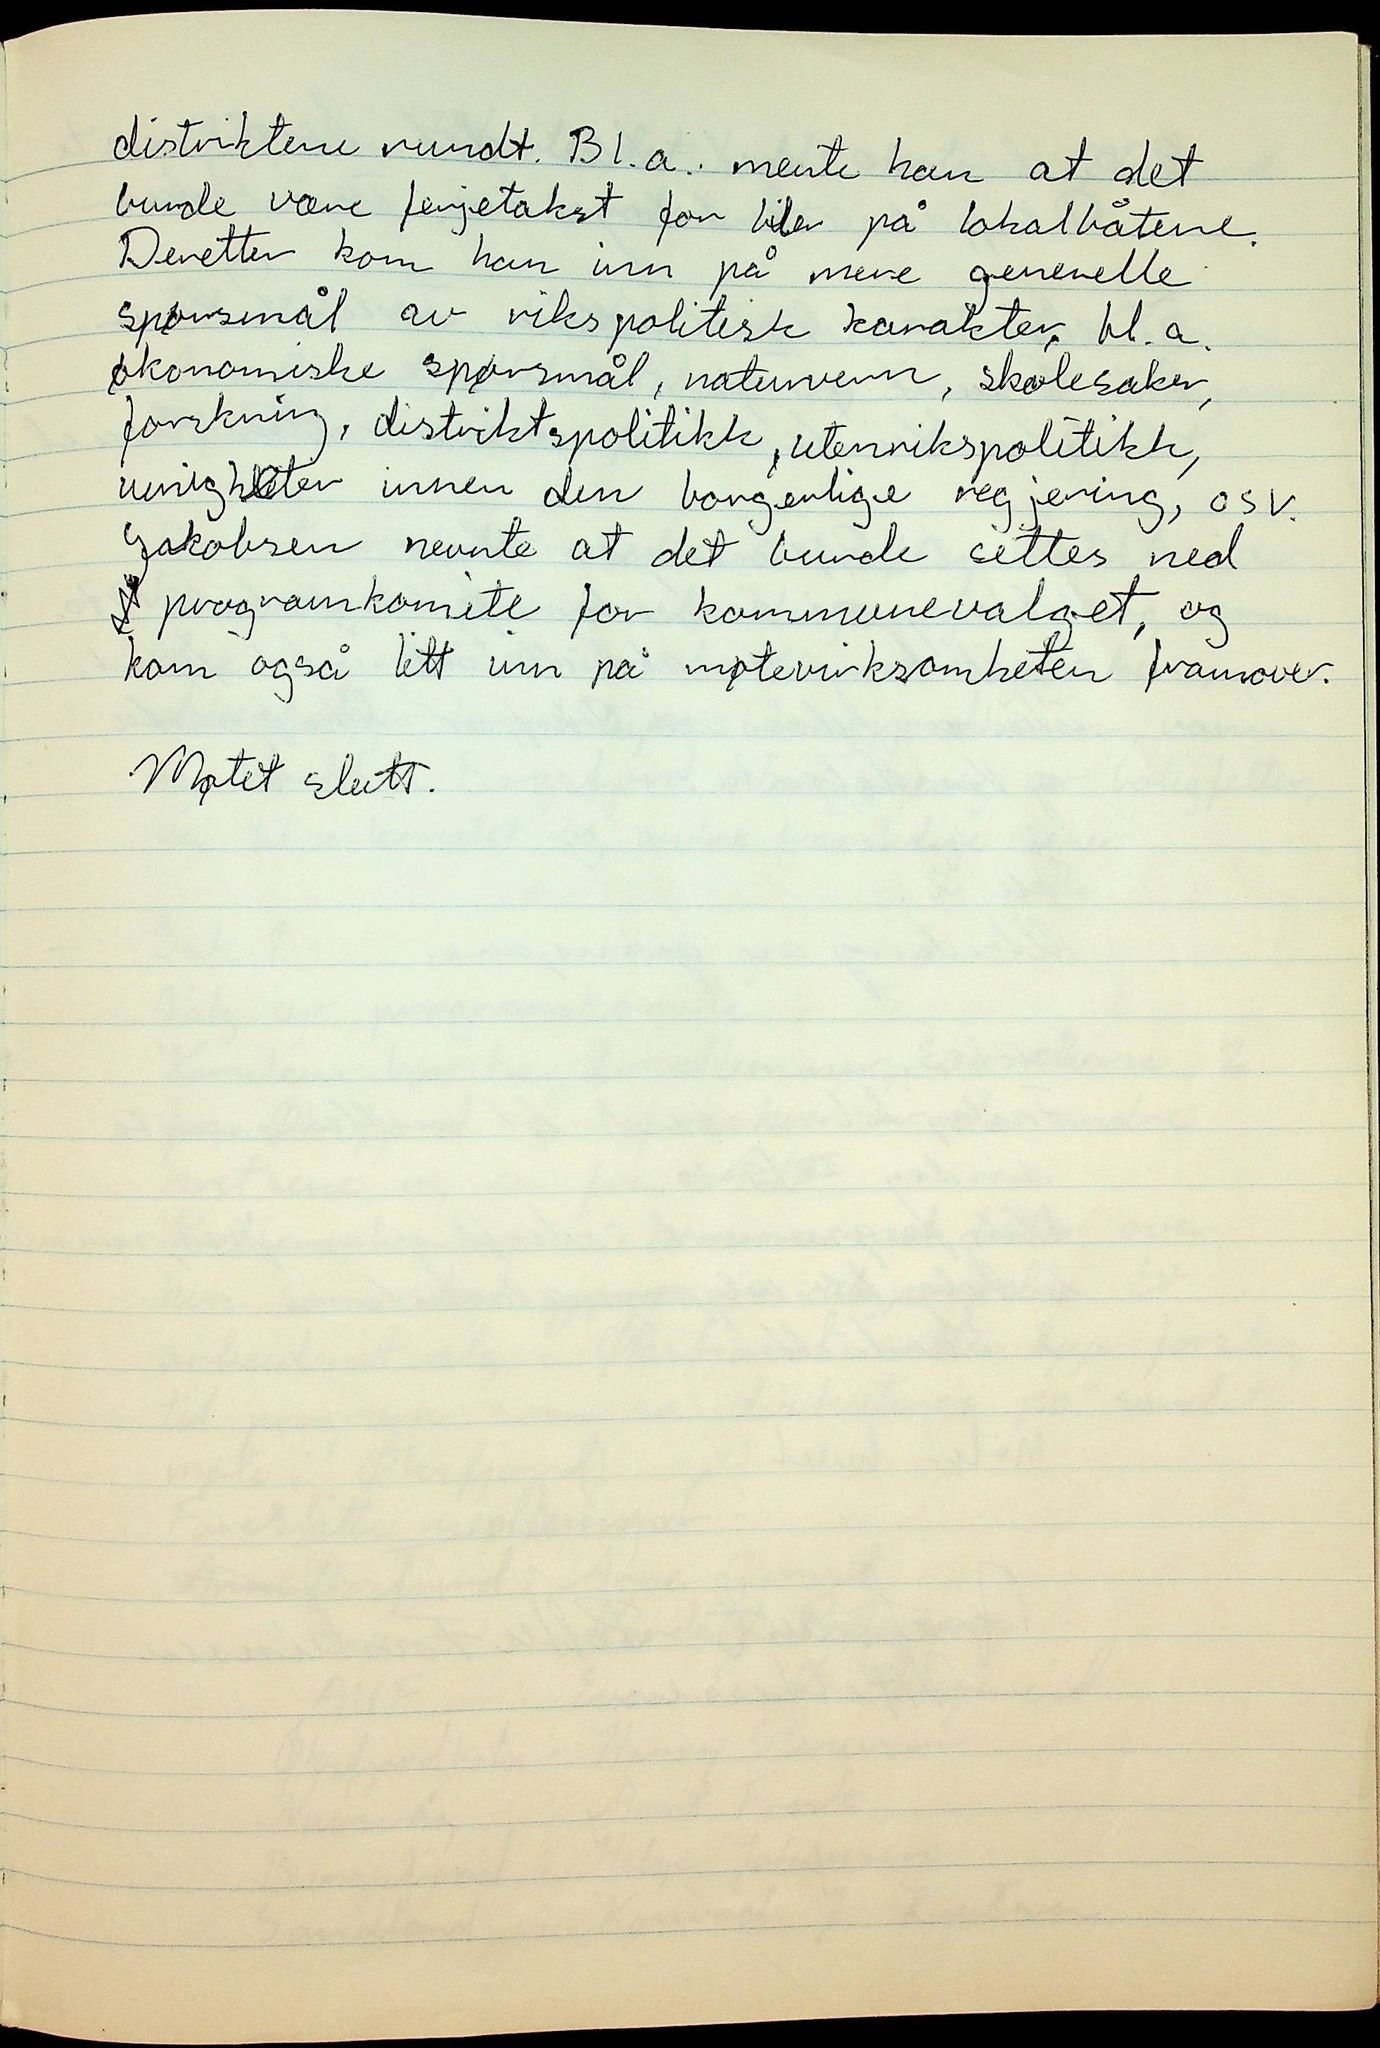 distriktene rundt. Bl.a. mente han at det
burde være ferjetakst for biler på lokalbåtene.
Deretter kom han inn på mere generelle
spørsmål av rikspolitisk karakter, bl.a.
økonomiske spørsmål, naturvern, skolesaker,
forskning, distriktspolitikk, utenrikspolitikk,
uenigheter innen den borgerlige regjering, osv.
Jakobsen nevnte at det burde settes ned
programkomite for kommunevalget, og
kom også litt inn på møtevirksomheten framover.
Møtet slutt.